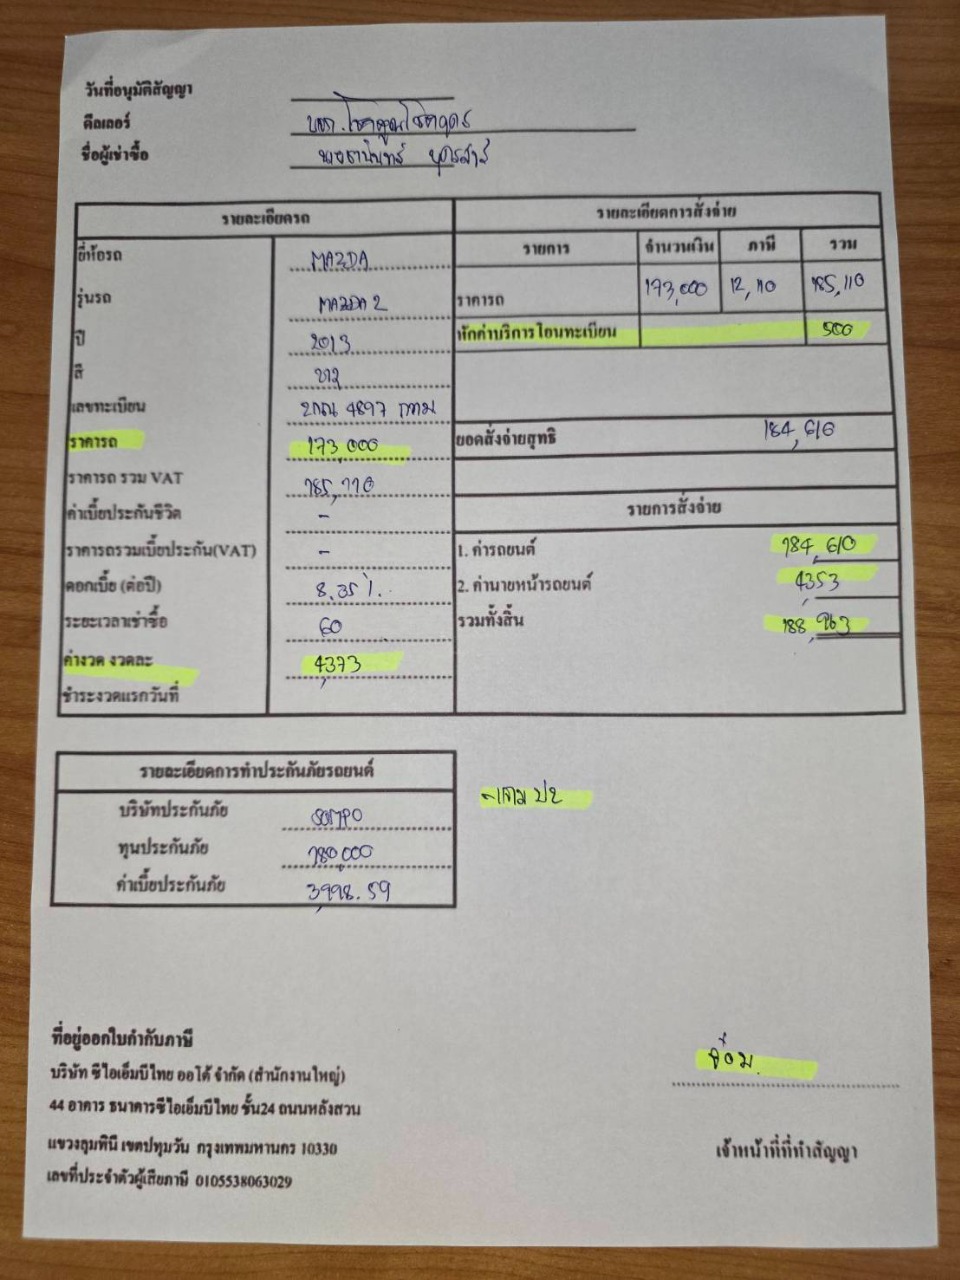 วันที่อนุมัติสัญญา
ดีลเลอร์ หจก.โชคคูณโชคอุดร
ชื่อผู้เช่าซื้อ
รายละเอียดรถ
ยี่ห้อรถ MAZDA
รุ่นรถ MAZDA 2
ปี 2013
สี ขาว
เลขทะเบียน 2กณ 4897 กทม
ราคารถ 173,000
ราคารถ รวม VAT 185,110
ค่าเบี้ยประกันชีวิต -
ราคารถรวมเบี้ยประกัน(VAT) -
ดอกเบี้ย (ต่อปี) 8.35 %.
ระยะเวลาเช่าซื้อ 60
ค่างวด งวดละ 4,373
ชำระงวดแรกวันที่
รายละเอียดการสั่งจ่าย
รายการ จำนวนเงิน ภาษี รวม
ราคารถ 173,000 12,110 185,110
หักค่าบริการโอนทะเบียน 500
ยอดสั่งจ่ายสุทธิ 184,610
รายการสั่งจ่าย
1. ค่ารถยนต์ 184,610
2. ค่านายหน้ารถยนต์ 4,353
รวมทั้งสิ้น 188,963
รายละเอียดการทำประกันภัยรถยนต์
บริษัทประกันภัย SOMPO
ทุนประกันภัย 180,000
ค่าเบี้ยประกันภัย 3,998.59
ที่อยู่ออกใบกำกับภาษี
บริษัท ซีไอเอ็มบีไทย ออโต้ จำกัด (สำนักงานใหญ่)
44 อาคาร ธนาคารซีไอเอ็มบีไทย ชั้น24 ถนนหลังสวน
แขวงลุมพินี เขตปทุมวัน กรุงเทพมหานคร 10330
เลขที่ประจำตัวผู้เสียภาษี 0105538063029
เจ้าหน้าที่ที่ทำสัญญา